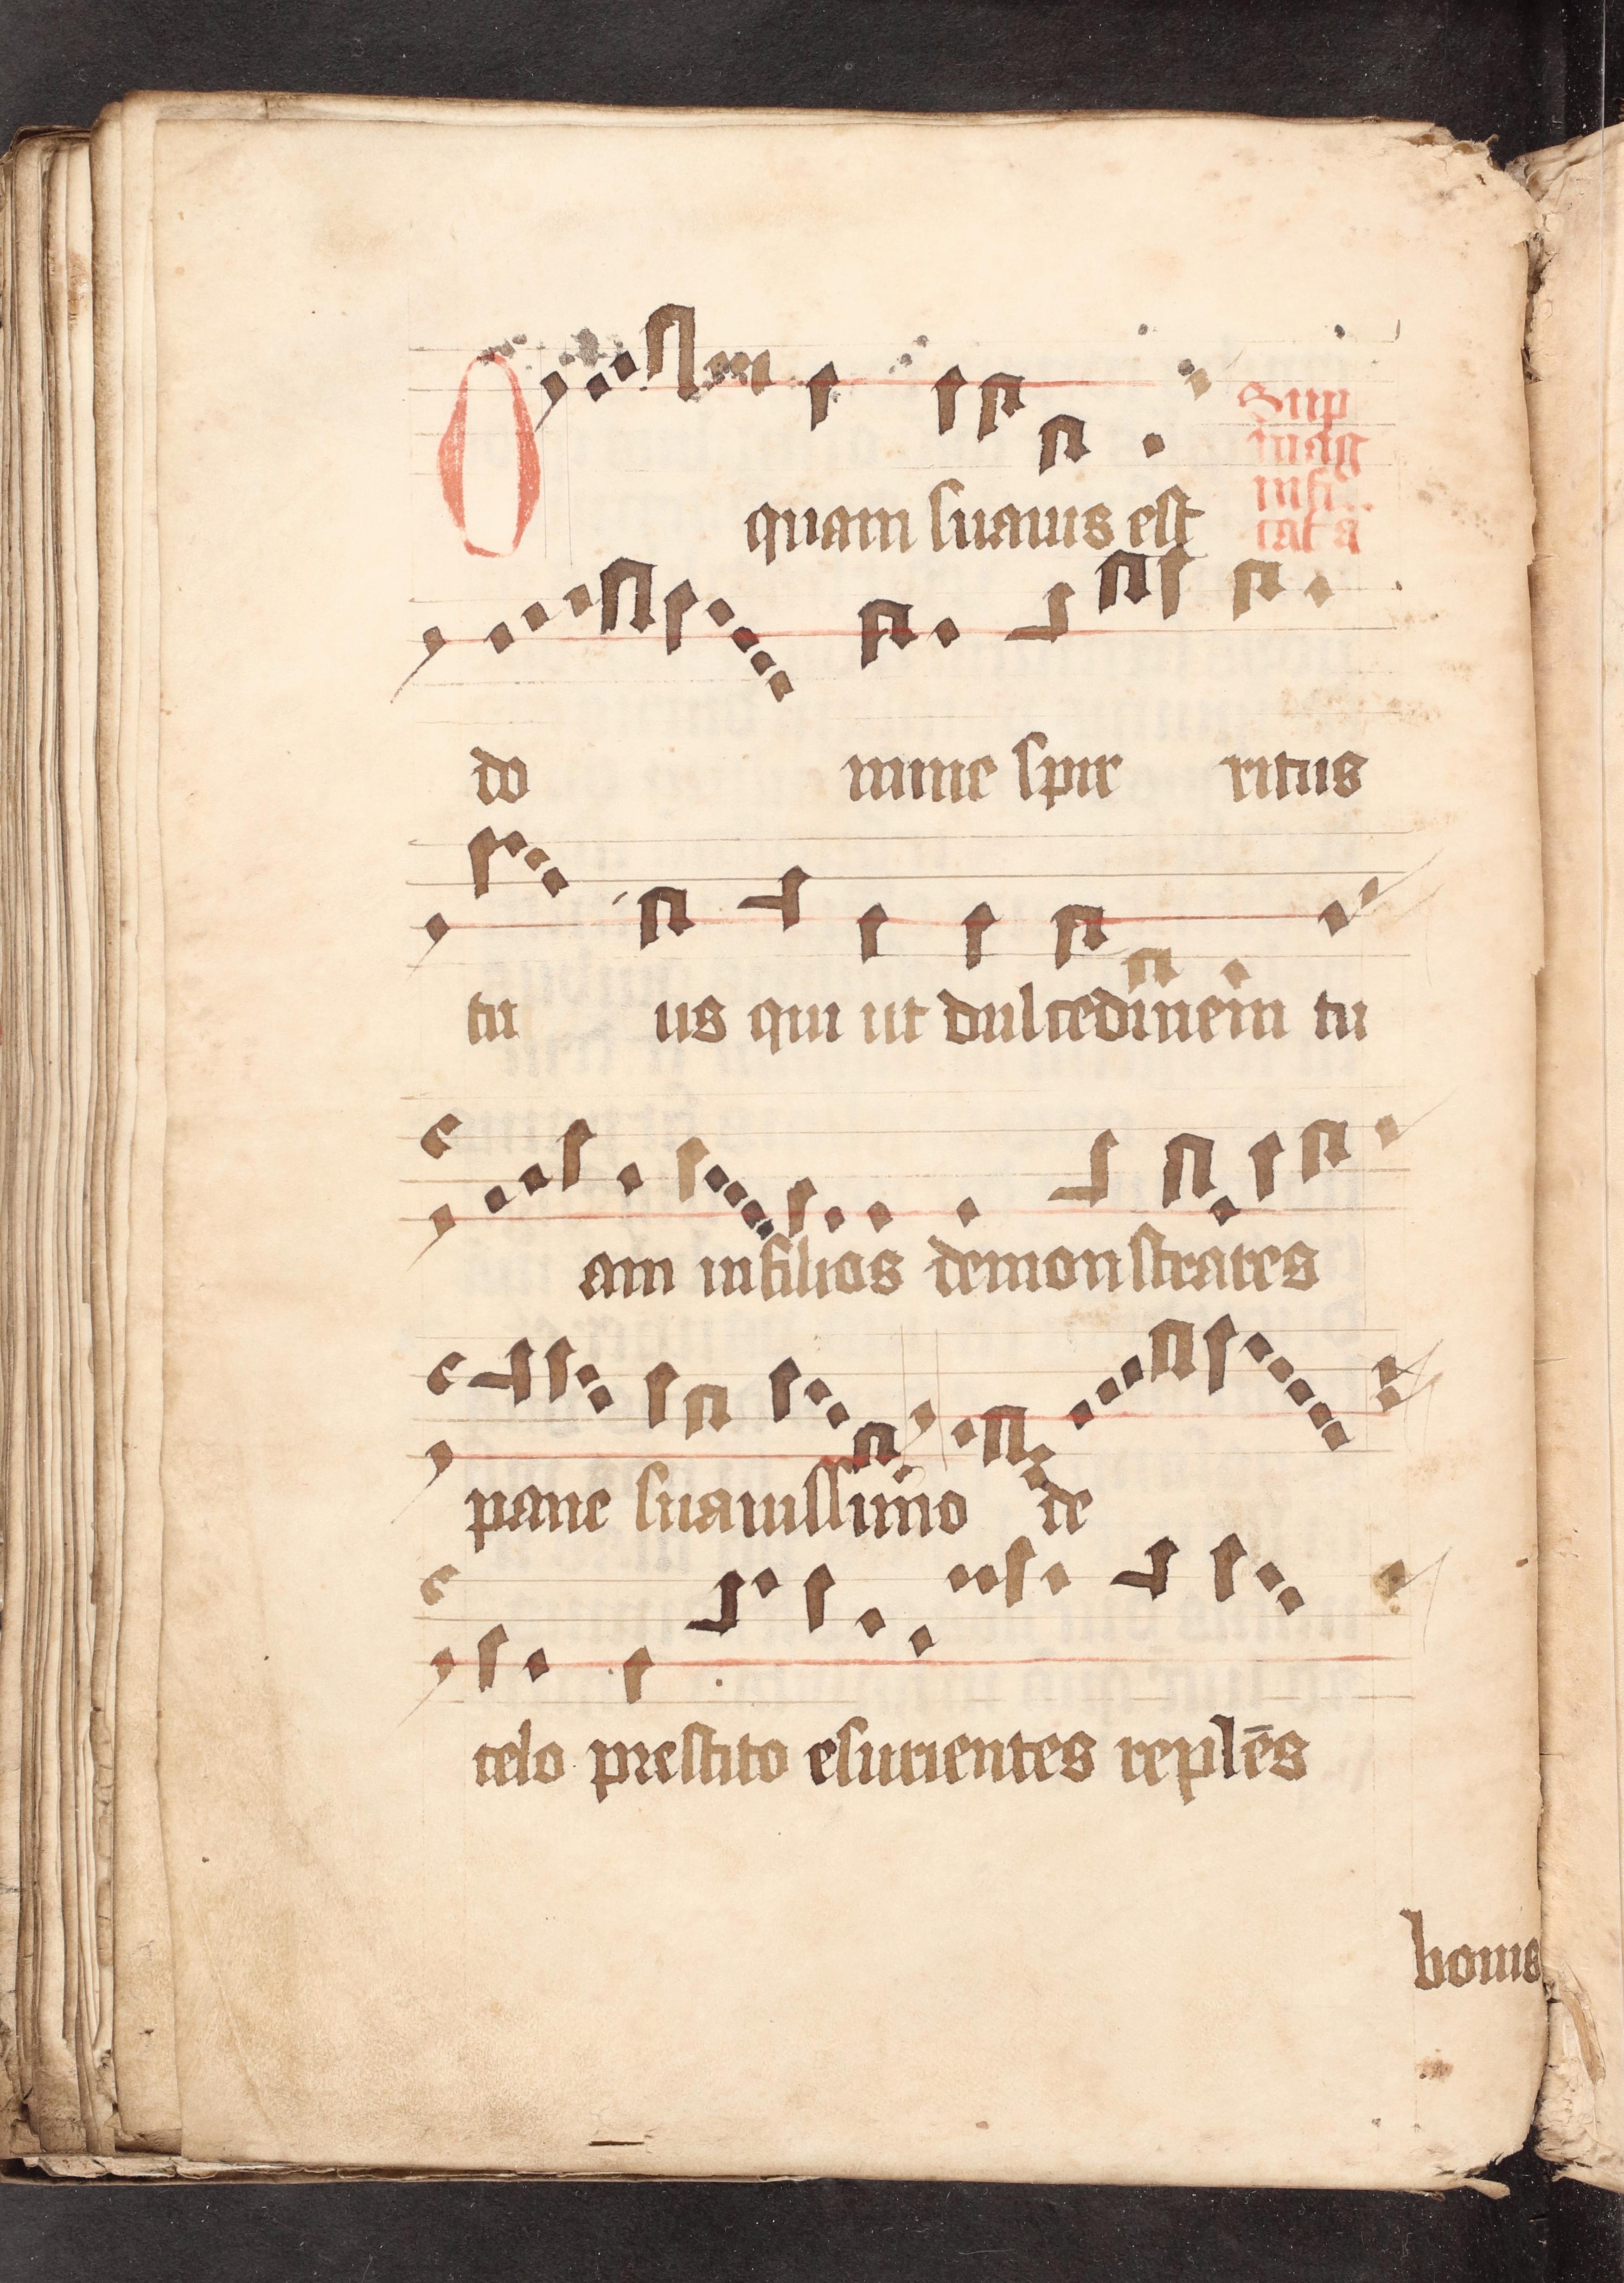 O quam suauis est
Sup
mag
infi..
tat a
do mine spir ritus
tu us qui ut dulcedinem tu
am in filios demonstrares
pane suauissimo de
celo prestito esurientes replēs
bonis